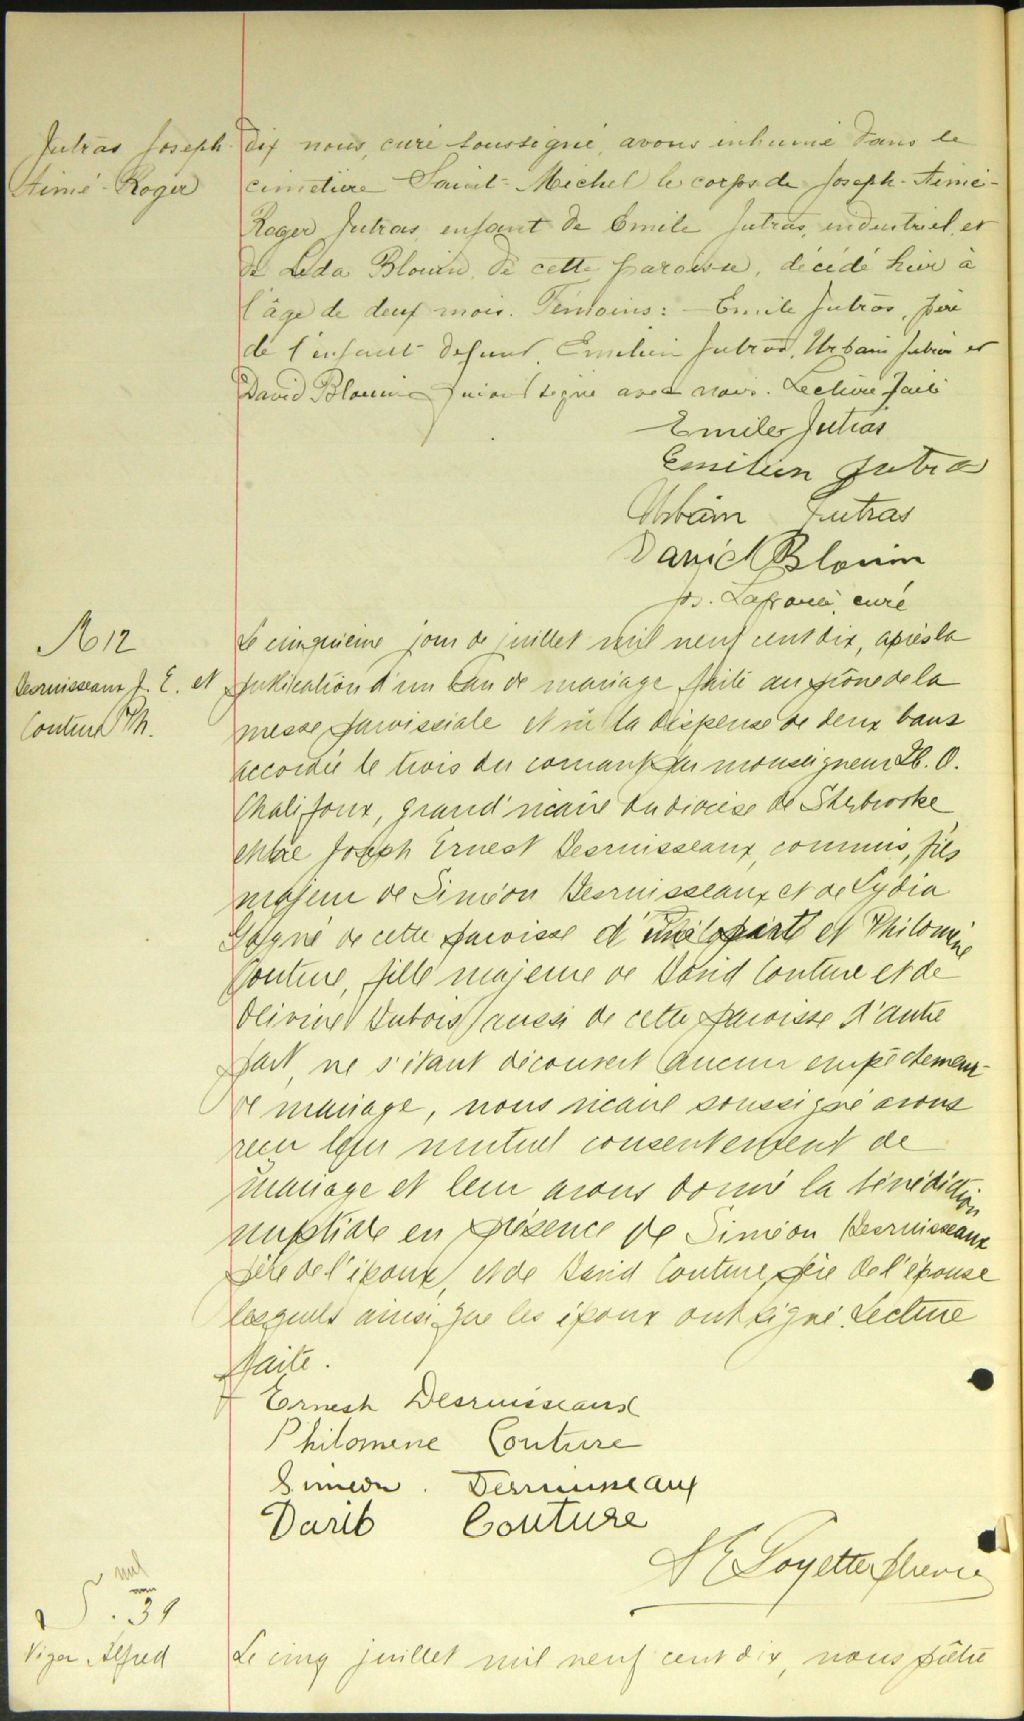 Jutras Joseph-
Aimé-Roger
dix nous, curé soussigné, avons inhumé dans le
cimetière Saint-Michel le corps de Joseph-Aimé-
Roger Jutras enfant de Emile Jutras, industriel, et
de Léda Blouin, de cette paroisse, décédé hier à
l'âge de deux mois. Témoins: Emile Jutras, père
de l'enfant defunt, Emilien Jutras, Urbain Jutras et
David Blouin qui ont signé avec nous. Lecture faite
Emile Jutras
Emilien Jutras
Urbain Jutras
David Blouin
curé
M 12
Desruisseaux J. E. et
Couture Ph.
Le cinquième jour de juillet mil neuf cent dix, après la
publication d'un ban de mariage faite au prône de la
messe paroissiale et vu la dispense de deux bans
accordée le trois du courant par monseigneur H. O.
Chalifoux, grand'vicaire du diocèse de Sherbrooke,
entre Joseph Ernest Desruisseaux, commis, fils
majeur de Siméon Desruisseaux et de Lydia
Gagné de cette paroisse d'une part et Philomène
Couture, fille majeure de David Couture et de
Olivine Dubois aussi de cette paroisse d'autre
part, ne s'étant découvert aucun empêchement
de mariage, nous vicaire soussigné avons
reçu leur mutuel consentement de
mariage et leur avons donné la bénédiction
nuptiale en présence de Siméon Desruisseaux
père de l'époux, et de David Couture, père de l'épouse
lesquels ainsi que les époux ont signé. Lecture
faite.
Ernest Desruisseaux
Philomene Couture
Simeon Desruisseaux
David Couture
Goyette
S. 39
Viger Alfred
Le cinq juillet mil neuf cent dix, nous prêtre